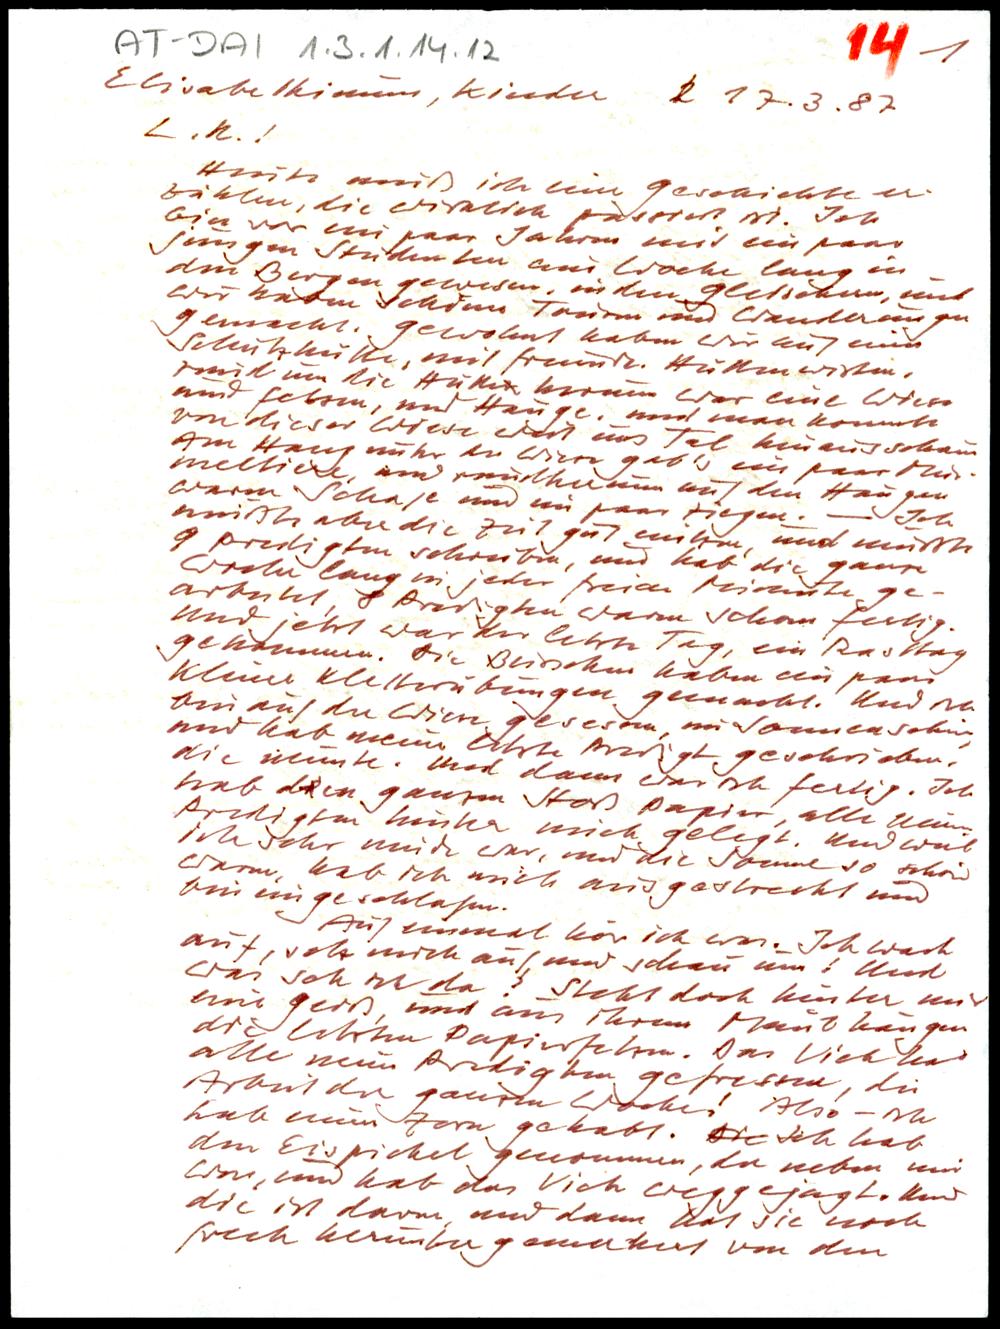 AT-DAI 1.3.1.14.12
14 - 1
Elisabethinum, Kinder 17.3.87
L.K.!
Heute muß ich eine Geschichte er-
zählen, die wirklich passiert ist. Ich
bin vor ein paar Jahren mit ein paar
jungen Studenten eine Woche lang in
den Bergen gewesen, in den Gletschern, und
wir haben schöne Touren und Wanderungen
gemacht. Gewohnt haben wir auf einer
Schutzhütte, mit freundl. Hüttenwirten.
rund um die Hütte herum war eine Wiese
und Felsen, und Hänge. und man konnte
von dieser Wiese weit ins Tal hinausschaun
Am Hang unter der Wiese gab's ein paar Mur-
meltiere, und rundherum auf den Hängen
waren Schafe und ein paar Ziegen. — Ich
mußte aber die Zeit gut nützen, und mußte
9 Predigten schreiben, und hab die ganze
Woche lang in jeder freien Minute ge-
arbeitet, 8 Predigten waren schon fertig.
Und jetzt war der letzte Tag, ein Rasttag
gekommen. Die Burschen haben ein paar
kleine Kletterübungen gemacht. Und ich
bin auf der Wiese gesessen, im Sonnenschein,
und hab meine letzte Predigt geschrieben,
die neunte. Und dann war ich fertig. Ich
hab den ganzen Stoß Papier, alle neun
Predigten hinter mich gelegt. Und weil
ich sehr müde war, und die Sonne so schön
warm, hab ich mich ausgestreckt und
bin eingeschlafen.
Auf einmal hör ich was. Ich wach
auf, setz mich auf und schau um! Und
was seh ich da? Steht doch hinter mir
eine Geiß, und aus ihrem Maul hängen
die letzten Papierfetzen. Das Vieh hat
alle neun Predigten gefressen, die
Arbeit der ganzen Woche! Also - ich
hab einen Zorn gehabt. Ich hab
den Eispickel genommen, der neben mir
war, und hab das Vieh weggejagt. Und
die ist davon, und dann hat sie noch
frech herübergemeckert von den